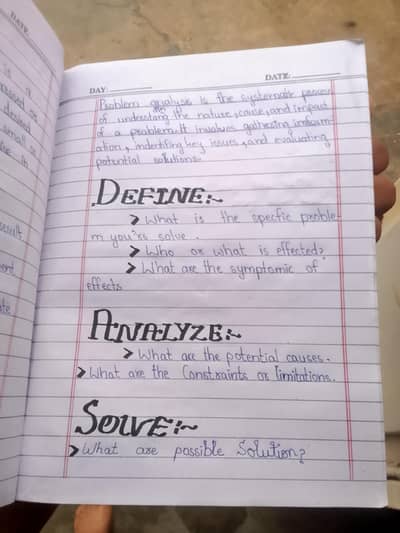 DATE
DAY:
DATE:
Problem analyse is the systematic process
of understing the nature, cause, and impact
of a problem. It involves gathering inform-
ation, indentifing key issues, and evaluating
potential solutions.
DEFINE:~
What is the specfic proble-
m you're solve.
Who or what is effected?
What are the symptomic of
effects
ANALYZE:~
What are the potential causes.
What are the Constraints or limitations.
SOLVE:~
What are possible Solution?